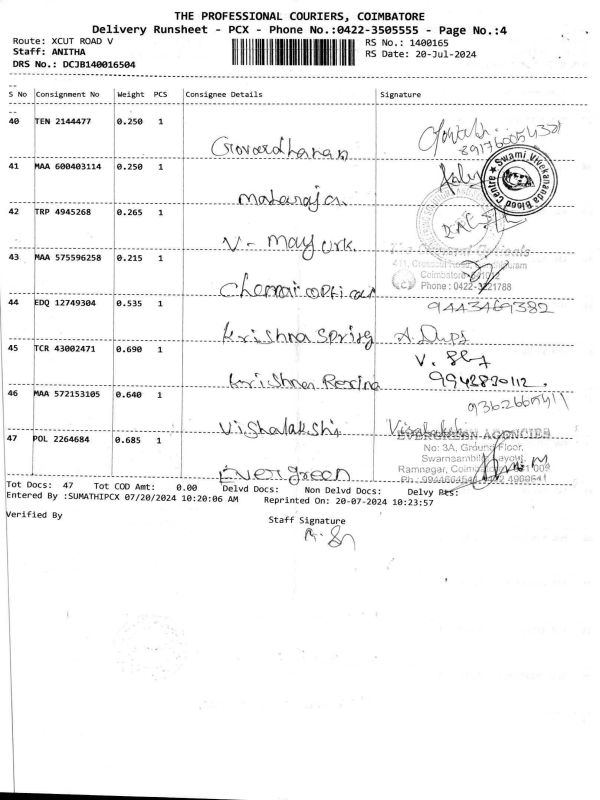 THE PROFESSIONAL COURIERS, COIMBATORE
Delivery Runsheet - PCX - Phone No.:0422-3505555 - Page No.:4
Route: XCUT ROAD V
RS No.: 1400165
Staff: ANITHA
RS Date: 20-Jul-2024
DRS No.: DCJB140016504
S No Consignment No Weight PCS Consignee Details Signature
40 TEN 2144477 0.250 1
Govardhanan
41 MAA 600403114 0.250 1
Swami Vivekananda Blood Centre
Maharaja
42 TRP 4945268 0.265 1
V - Mayurk
43 MAA 575596258 0.215 1
Coimbatore
Phone : 0422-3221788
Chennai optical
44 EDQ 12749304 0.535 1
9443469382
Krishna Spring
45 TCR 43002471 0.690 1
Krishna Rexine
9942830112.
46 MAA 572153105 0.640 1
Vishalakshi
47 POL 2264684 0.685 1
EVERGREEN AGENCIES
No: 3A, Ground Floor,
Swarnsambika Layout,
Ramnagar,
Evergreen
Tot Docs: 47 Tot COD Amt: 0.00 Delvd Docs: Non Delvd Docs: Delvy Pts:
Entered By :SUMATHIPCX 07/20/2024 10:20:06 AM Reprinted On: 20-07-2024 10:23:57
Verified By
Staff Signature